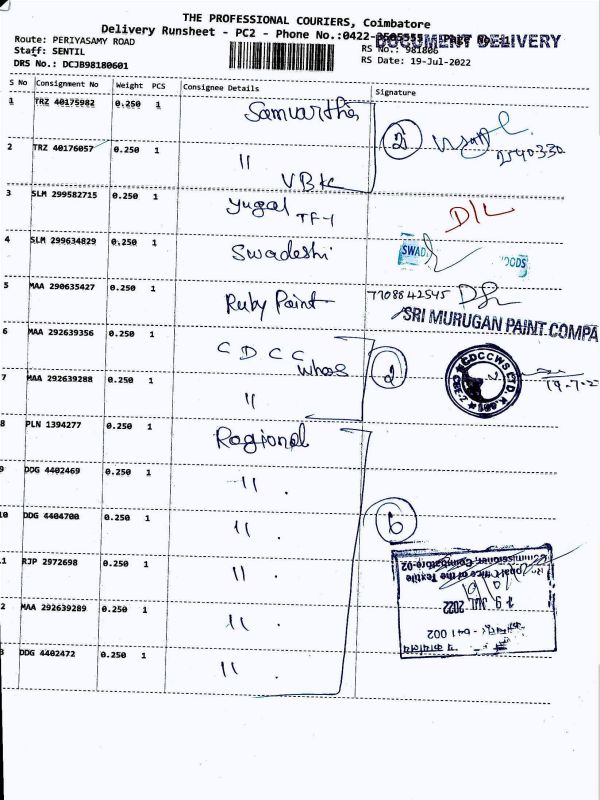 THE PROFESSIONAL COURIERS, Coimbatore
Delivery Runsheet - PC2 - Phone No.:0422-
DOCUMENT DELIVERY
Route: PERIYASAMY ROAD
RS No.: 981806
Staff: SENTIL
RS Date: 19-Jul-2022
DRS No.: DCJB98180601
S No Consignment No Weight PCS Consignee Details Signature
1 TRZ 40175982 0.250 1 Samvartha
2 2540330
2 TRZ 40176057 0.250 1 "
VBK
3 SLM 299582715 0.250 1 Yugal TF-1 D/L
4 SLM 299634829 0.250 1 Swadeshi SWAD OODS
5 MAA 290635427 0.250 1 Ruby Paint 7708842545
SRI MURUGAN PAINT COMPA
6 MAA 292639356 0.250 1 C D C C Whos 2
CDCCWS LTD.
7 MAA 292639288 0.250 1 "
8 PLN 1394277 0.250 1 Ragional
9 DDG 4402469 0.250 1 " .
10 DDG 4404700 0.250 1 " . 6
Commissioner, Coimbatore-02
Office of the Textile
1 RJP 2972698 0.250 1 " .
19 JUL 2022
2 MAA 292639289 0.250 1 " .
- 641 002
3 DDG 4402472 0.250 1 " .